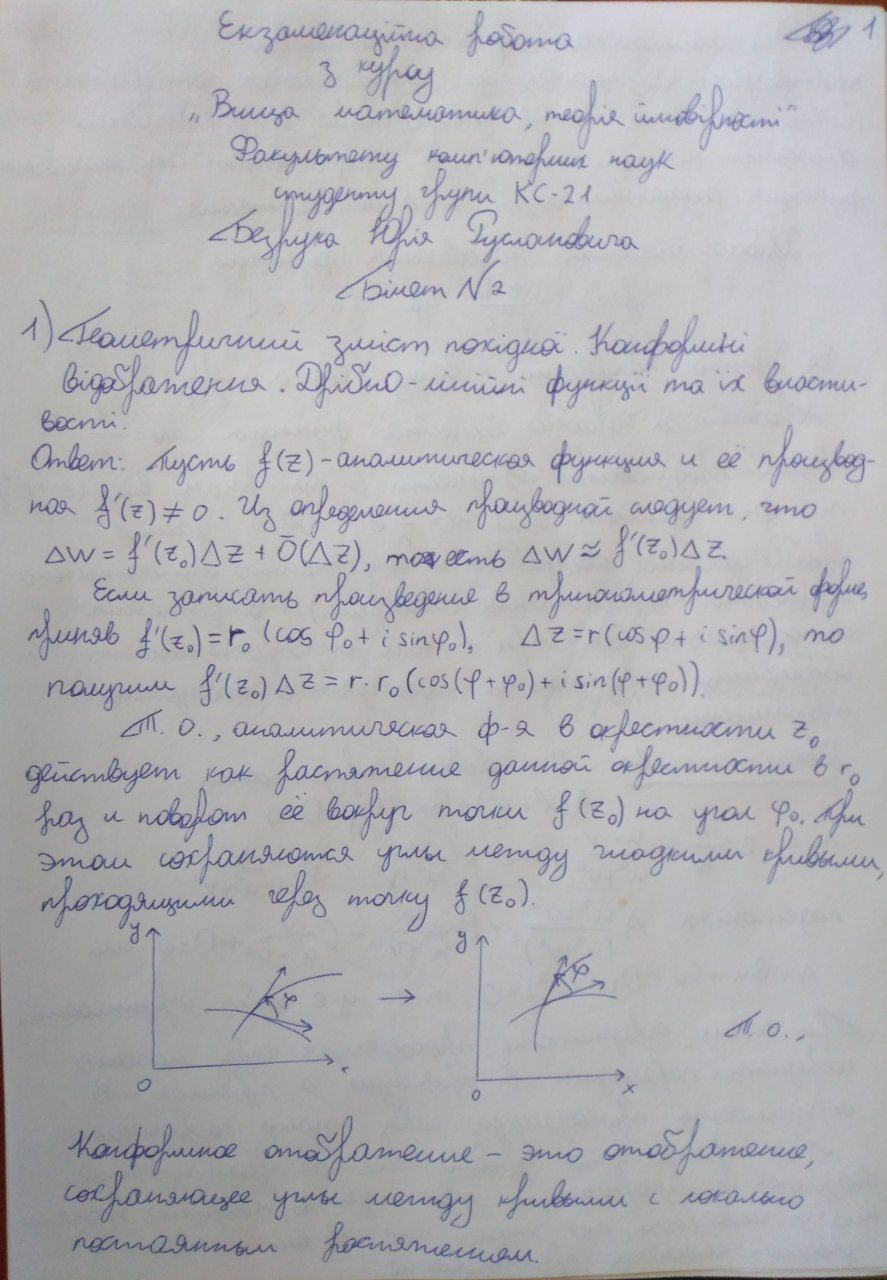 Екзаменаційна робота
1
з курсу
„Вища математика, теорія ймовірності"
Факультету комп'ютерних наук
студенту групи КС-21
Безрука Юрія Руслановича
Білет №2
1) Геометричний зміст похідної. Конформні
відображення. Дрібно-лінійні функції та їх власти-
вості.
Ответ: Пусть f(z) - аналитическая функция и её производ-
ная f'(z) ≠ 0. Из определения производной следует, что
ΔW = f'(z₀)Δz + Ō(Δz), то есть ΔW ≈ f'(z₀)Δz.
Если записать произведения в тригонометрической форме,
приняв f'(z₀) = r₀ (cos φ₀ + i sin φ₀), Δz = r(cos φ + i sin φ), то
получим f'(z₀)Δz = r·r₀(cos(φ+φ₀) + i sin(φ+φ₀)).
Т. О., аналитическая ф-я в окрестности z₀
действует как растяжение данной окрестности в r₀
раз и поворот её вокруг точки f(z₀) на угол φ₀. При
этом сохраняются углы между гладкими кривыми,
проходящими через точку f(z₀).
y y
φ → φ
Т. О.,
0 x 0 x
Конформное отображение - это отображение,
сохраняющее углы между кривыми с локально
постоянным растяжением.